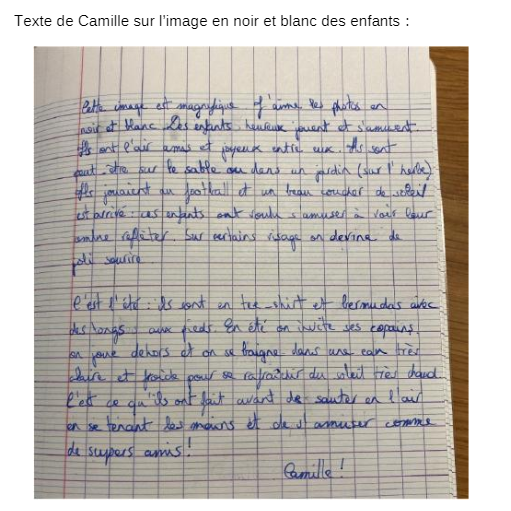 Texte de Camille sur l'image en noir et blanc des enfants :
Cette image est magnifique J'aime les photos en
noir et blanc Des enfants heureux jouent et s'amusent.
Ils ont l'air amis et joyeux entre eux. Ils sont
peut-être sur le sable ou dans un jardin (sur l'herbe)
Ils jouaient au football et un beau coucher de soleil
est arrivé : ces enfants ont voulu s'amuser à voir leur
ombre refléter. Sur certains visage on devine de
joli sourire
C'est l'été : ils sont en tee-shirt et bermudas avec
des tongs aux pieds. En été on invite ses copains,
on joue dehors et on se baigne dans une eau très
claire et froide pour se rafraichir du soleil très chaud.
C'est ce qu'ils ont fait avant de sauter en l'air
en se tenant les mains et de s'amuser comme
de supers amis !
Camille !